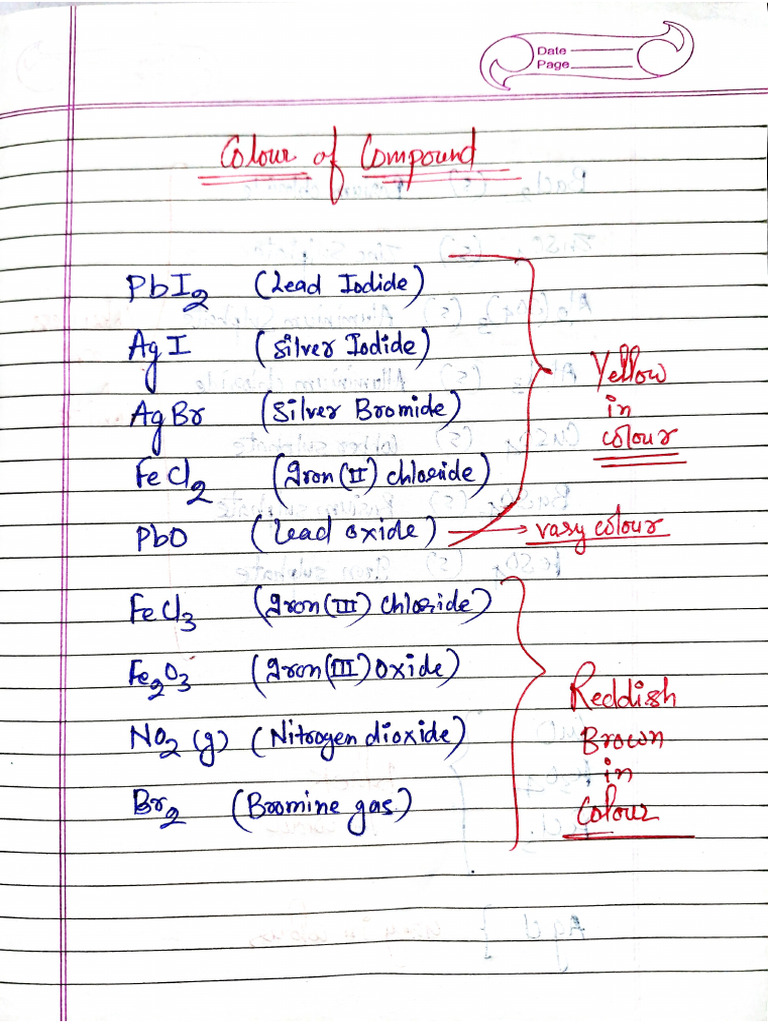 Date
Page
Colour of Compound
PbI2 (Lead Iodide)
AgI (Silver Iodide)
AgBr (Silver Bromide)
FeCl2 (Iron(II) chloride)
PbO (Lead oxide) → vary colour
Yellow
in
colour
FeCl3 (Iron(III) chloride)
Fe2O3 (Iron(III) oxide)
NO2 (g) (Nitrogen dioxide)
Br2 (Bromine gas)
Reddish
Brown
in
Colour